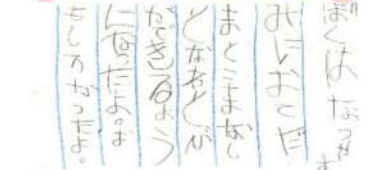 ぼくはなつやす
みにおてだ
まとこまない
となわとびが
だできるよう
になったよ。お
もしろかったよ。